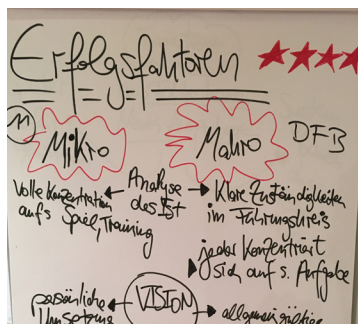 Erfolgsfaktoren
Mikro
Makro
DFB
Volle Konzentration
aufs Spiel, Training
Analyse
des Ist
Klare Zuständigkeiten
im Führungskreis
jeder konzentriert
sich auf s. Aufgabe
persönliche
Umsetzung
VISION
allgemein gültige